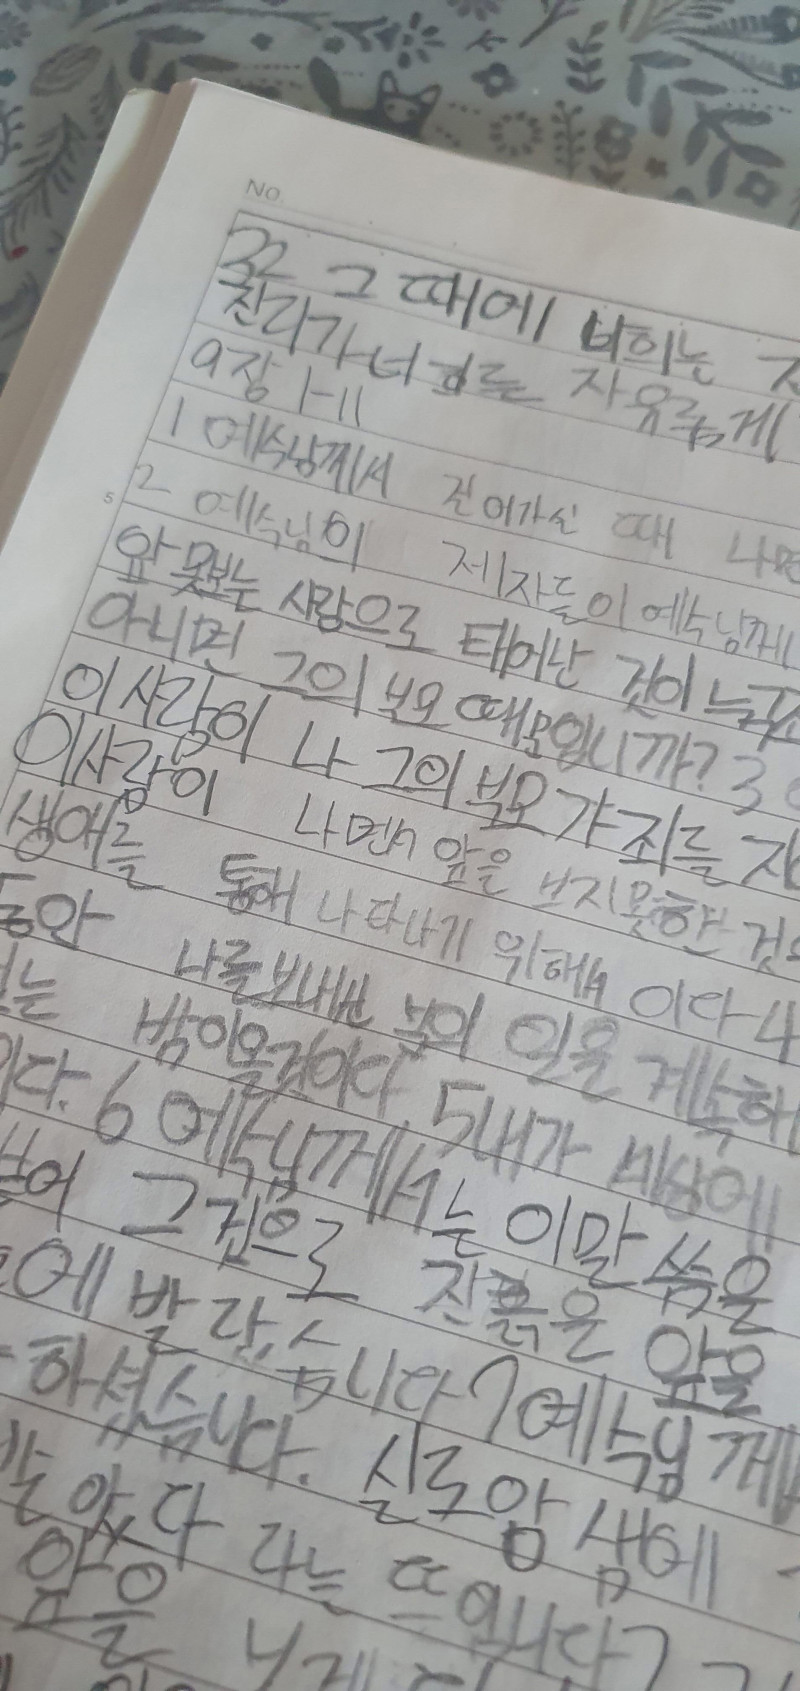 No.
32 그 때에 너희는
진리가 너희를 자유롭게
9장 1-11
1 예수님께서 길 어가실 때 나면
5
2 예수님의 제자들이 예수님께
앞 못보는 사람으로 태어난 것이 누구
아니면 그의 부모 때문입니까? 3
이 사람이 나 그의 부모 가 죄를
이사람이 나면서 앞을 보지못한 것
생애를 통해 나타나기 위해서 이다 4
동안 나를보내신 분의 일을 계속해
는 밤이올것이다 5내가 세상에
다. 6 예수님께서는 이말 씀을
그것으로 진흙은 앞을
에 발 랐습니다 7예수님 께
하셨습니다. 실로암 샘에
았다 라는 뜨입니다
앞을